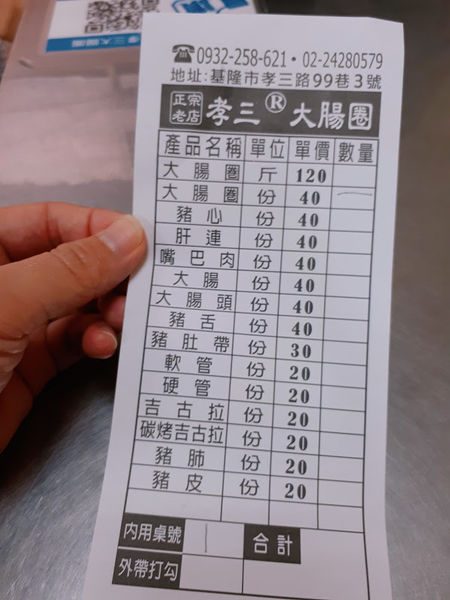 ☎0932-258-621•02-24280579
地址:基隆市孝三路99巷3號
正宗老店 孝三®大腸圈
產品名稱 單位 單價 數量
大腸圈 斤 120
大腸圈 份 40 一
豬心 份 40
肝連 份 40
嘴巴肉 份 40
大腸 份 40
大腸頭 份 40
豬舌 份 40
豬肚帶 份 30
軟管 份 20
硬管 份 20
吉古拉 份 20
碳烤吉古拉 份 20
豬肺 份 20
豬皮 份 20
內用桌號 1 合計
外帶打勾